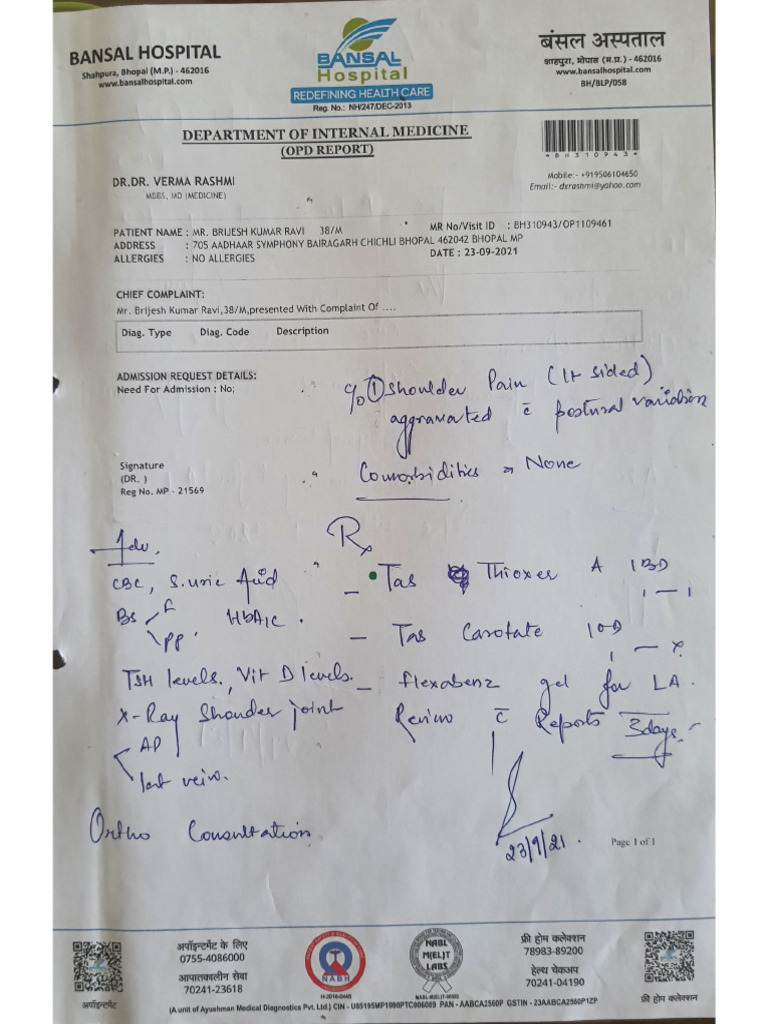 BANSAL HOSPITAL
Shahpura, Bhopal (M.P.) - 462016
www.bansalhospital.com
BANSAL
Hospital
REDEFINING HEALTH CARE
Reg. No.: NH/247/DEC-2013
बंसल अस्पताल
शाहपुरा, भोपाल (म.प्र.) - 462016
www.bansalhospital.com
BH/BLP/058
DEPARTMENT OF INTERNAL MEDICINE
(OPD REPORT)
*BH310943*
DR.DR. VERMA RASHMI
MBBS, MD (MEDICINE)
Mobile:- +919506104650
Email:- dxrashmi@yahoo.com
PATIENT NAME : MR. BRIJESH KUMAR RAVI 38/M
MR No/Visit ID : BH310943/OP1109461
ADDRESS : 705 AADHAAR SYMPHONY BAIRAGARH CHICHLI BHOPAL 462042 BHOPAL MP
ALLERGIES : NO ALLERGIES
DATE : 23-09-2021
CHIEF COMPLAINT:
Mr. Brijesh Kumar Ravi,38/M,presented With Complaint Of ....
Diag. Type Diag. Code Description
ADMISSION REQUEST DETAILS:
Need For Admission : No;
c/o ① Shoulder Pain (lt sided)
aggravated c̄ postural variation
Signature
(DR. )
Reg No. MP - 21569
Comorbidities → None
Adv.
CBC, S.uric Acid
Bs F
PP. HbA1C.
TSH levels., Vit D levels.
X-Ray Shoulder joint
AP
lat veiw.
Ortho Consultation
Rx
– Tab Thioxer A 1BD
1 — 1
– Tab Carotate 1OD
1 — x
– flexabenz gel for LA.
Review c̄ Reports 3days.
23/9/21.
Page 1 of 1
अपॉइन्टमेंट
अपॉइन्टमेंट के लिए
0755-4086000
आपातकालीन सेवा
70241-23618
NABH
H-2016-0445
NABL
M(EL)T
LABS
NABL-M(EL)T-00600
फ्री होम कलेक्शन
78983-89200
हेल्थ चेकअप
70241-04190
फ्री होम कलेक्शन
(A unit of Ayushman Medical Diagnostics Pvt. Ltd.) CIN - U85195MP1990PTC006089 PAN - AABCA2560P GSTIN - 23AABCA2560P1ZP